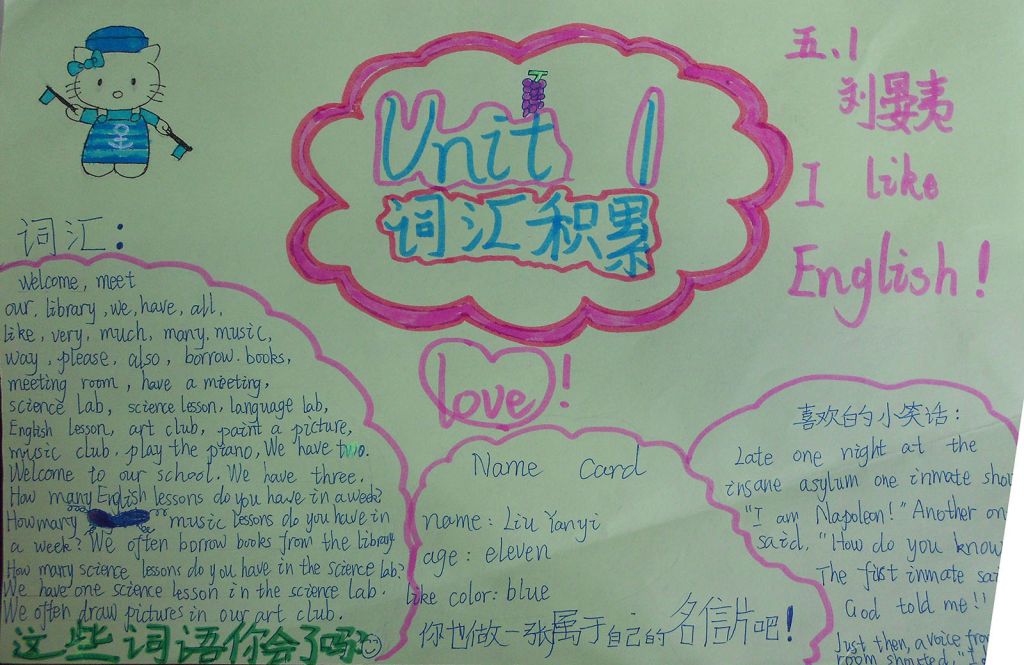 Unit 1
词汇积累
五.1
刘晏夷
I like
English!
love!
词汇:
Welcome, meet
our, library, we, have, all,
like, very, much, many, music,
way, please, also, borrow. books,
meeting room, have a meeting,
science lab, science lesson, language lab,
English lesson, art club, paint a picture,
music club, play the piano, We have two.
Welcome to our school. We have three.
How many English lessons do you have in a week?
How many music lessons do you have in
a week? We often borrow books from the library
How many science lessons do you have in the science lab?
We have one science lesson in the science lab.
We often draw pictures in our art club.
这些词语你会了吗?
Name Card
name: Liu Yanyi
age: eleven
like color: blue
你也做一张属于自己的名信片吧!
喜欢的小笑话:
Late one night at the
insane asylum one inmate shou
"I am Napoleon!" Another on
said, "How do you know
The first inmate sai
God told me!!
Just then, a voice from
room shouted, "I